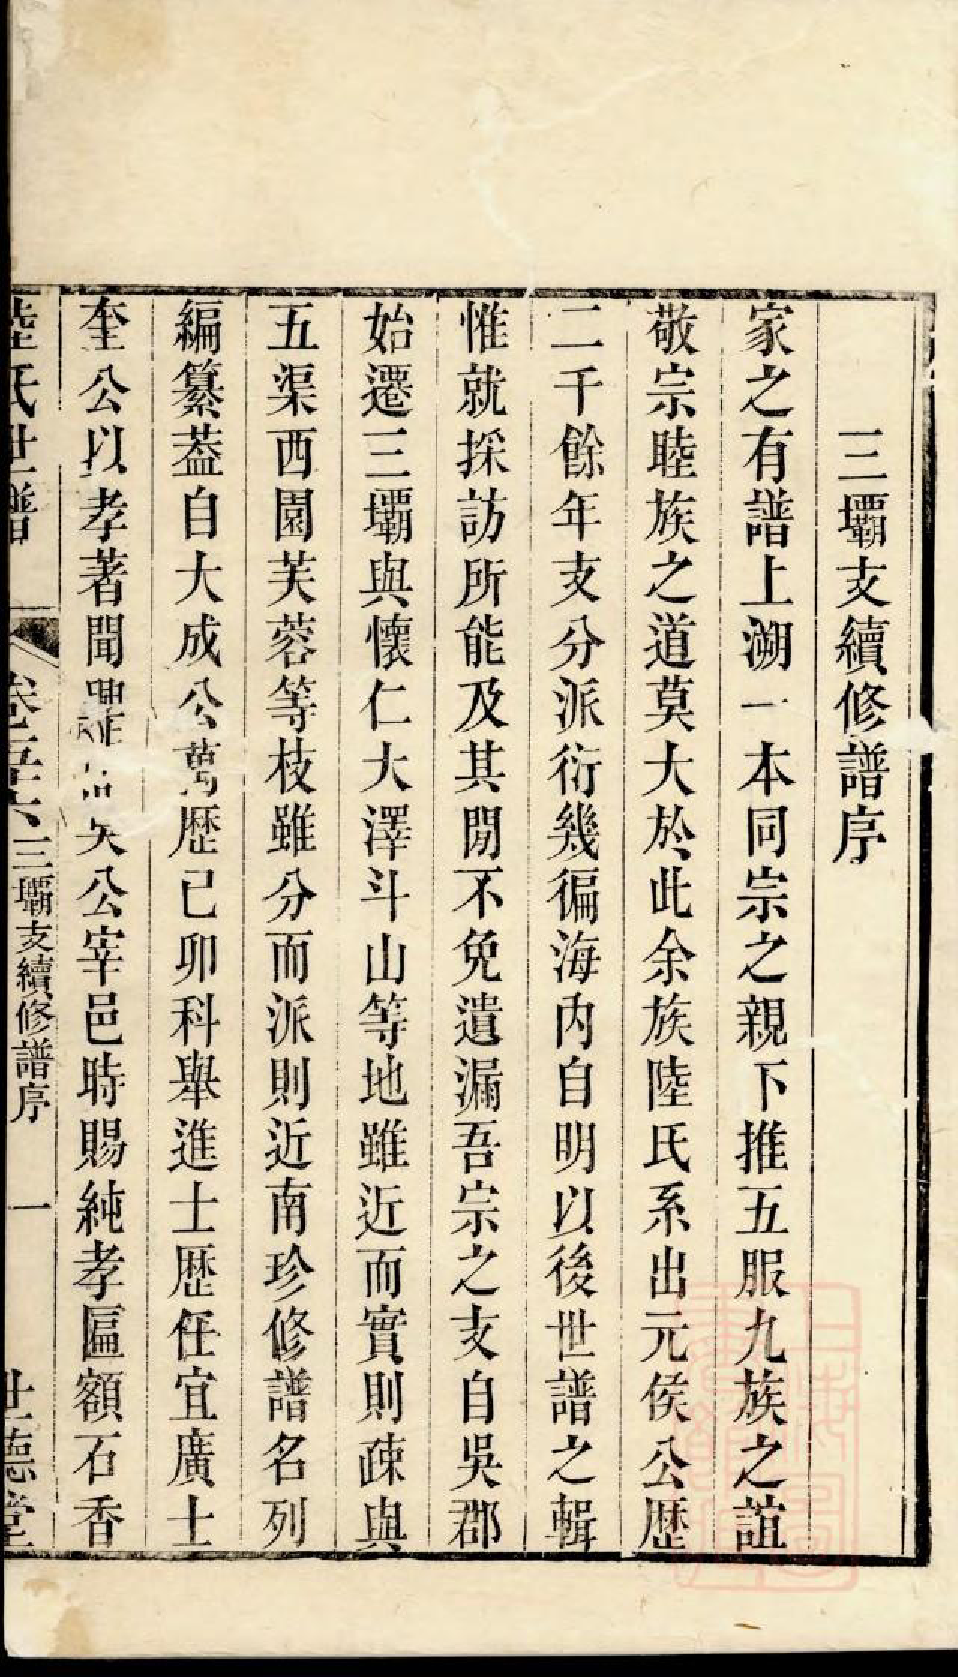 三壩支續修譜序
家之有譜上溯一本同宗之親下推五服九族之誼
敬宗睦族之道莫大於此余族陸氏系出元侯公歷
二千餘年支分派衍幾徧海內自明以後世譜之輯
惟就採訪所能及其閒不免遺漏吾宗之支自吳郡
始遷三壩與懷仁大澤斗山等地雖近而實則疎與
五渠西園芙蓉等枝雖分而派則近南珍修譜名列
編纂葢自大成公萬歷已卯科舉進士歷任宜廣士
奎公以孝著聞公宰邑時賜純孝匾額石香
陸氏世譜 卷 三壩支續修譜序 一 世德堂